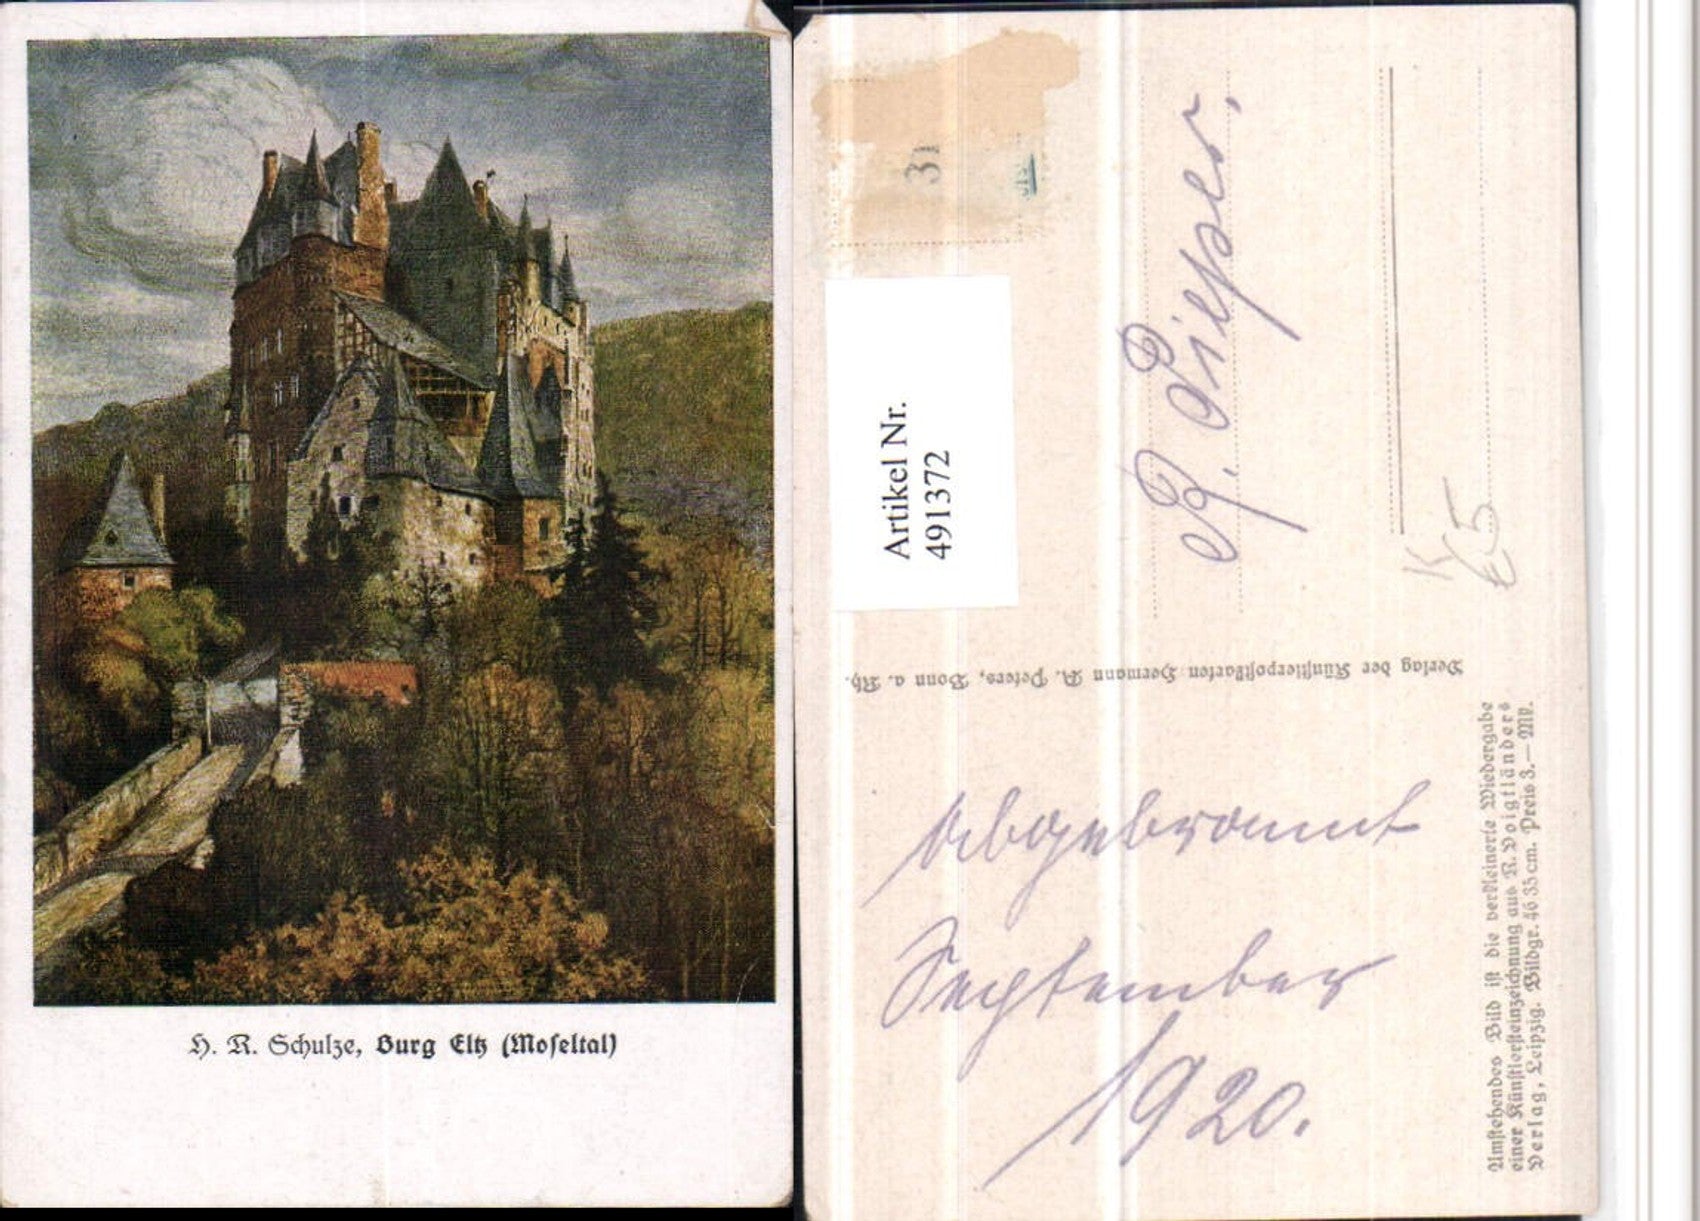 H. R. Schulze, Burg Eltz (Moseltal)
31
Artikel Nr.
491372
R. Pieper.
K
€5
Verlag der Künstlerpostkarten Hermann A. Peters, Bonn a. Rh.
abgebrannt
September
1920.
Umstehendes Bild ist die verkleinerte Wiedergabe
einer Künstlersteinzeichnung aus R. Voigtländers
Verlag, Leipzig. Bildgr. 46 35 cm. Preis 3.— Mk.